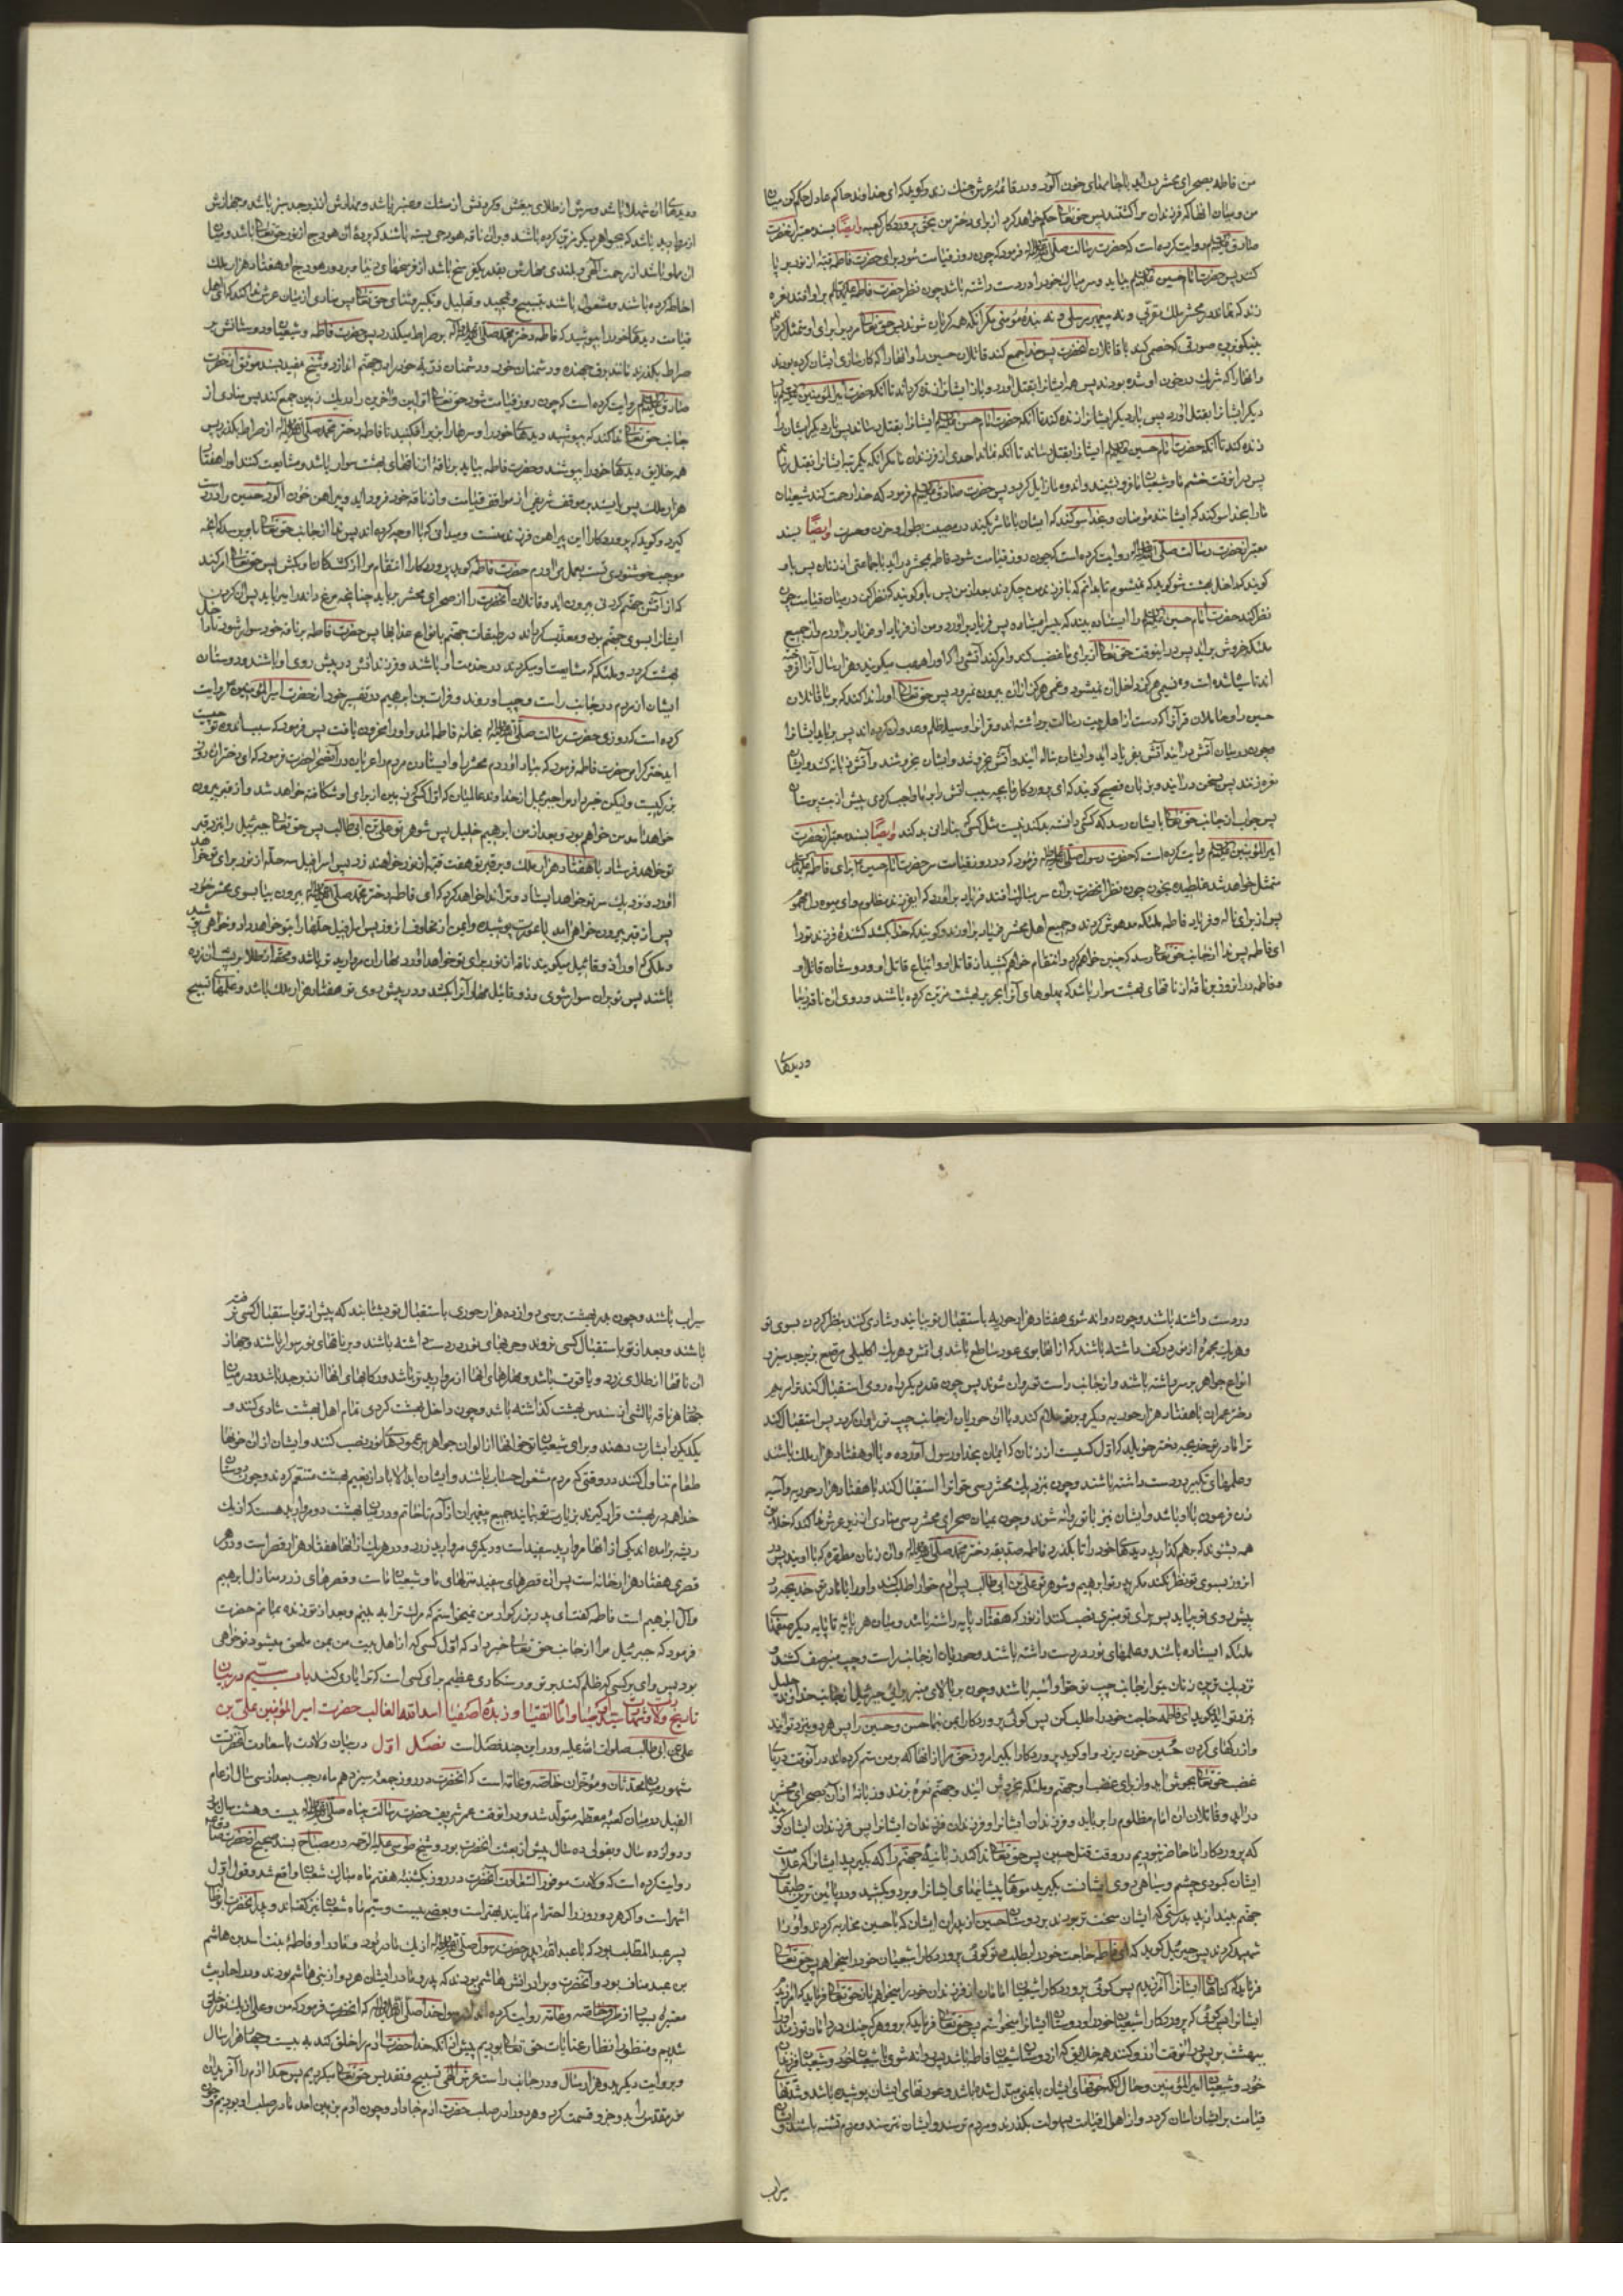 من فاطمه بصحرای محشر در آید با جامهای خون آلود و در قائمهٔ عرش چنک زند و کوید که ای خداوند حاکم عادل حکم کن میان
من و میان انها که فرزندان مرا کشتند پس حق تعالی حکم خواهد کرد از برای دختر من بحق پروردکار کعبه وایضًا بسند معتبر از حضرت
صادق روایت کرده است که حضرت رسالت صلی الله علیه و آله فرمود که چون روز قیامت شود برای حضرت فاطمه قبهٔ از نور بر پا
کنند پس حضرت امام حسین بیاید و سر مبارک خود را در دست داشته باشد چون نظر حضرت فاطمه بر او افتد نعره
زند که نماند در محشر ملک مقربی و نه پیغمبر مرسلی و نه بندهٔ مؤمنی مکر انکه همه کریان شوند پس حق تعالی
بنیکوترین صورتی که خصمی کند با قاتلان انحضرت پس خدا جمع کند قاتلان حسین را و انها را که کارسازی ایشان کرده بودند
و انها را که شریک در خون او شده بودند پس همه ایشانرا بقتل آورد و باز ایشانرا زنده کرداند تا آنکه حضرت امیر المؤمنین
دیکر ایشانرا بقتل آورد پس بار دیکر ایشانرا زنده کند تا آنکه حضرت امام حسن ایشانرا بقتل رساند پس بار دیکر ایشان را
زنده کند تا آنکه حضرت امام حسین ایشانرا بقتل رساند تا آنکه نماند احدی از فرزندان ما مکر آنکه یکمرتبه ایشانرا بقتل
پس در انوقت خشم ما و شیعیان ما فرو نشیند و اندوه ما زایل کردد پس حضرت صادق فرمود که خدا رحمت کند شیعیان
ما را بخدا سوکند که ایشانند مؤمنان و بخدا سوکند که ایشان با ما شریکند در مصیبت بطول و حزن و حسرت وایضًا بسند
معتبر از حضرت رسالت صلی الله علیه و آله روایت کرده است که چون روز قیامت شود فاطمه بمحشر در آید با جماعتی از زنان پس باو
کویند که داخل بهشت شو کوید که نمیشوم تا بدانم که با فرزند من چکردند بعد از من پس باو کویند که نظر کن در میان قیامت چون
نظر کند حضرت امام حسین را ایستاده بیند که سر نداشته پس فریاد بر آورد و من از فریاد او فریاد بر آورم و از جمیع
ملئکه خروش بر آید پس در اینوقت حق تعالی از برای ما غضب کند و امر کند آتشی را که او را هبهب میکویند و هزار سال آنرا افروخته
اند تا سیاه شده است و نسیمی هرکز داخل آن نمیشود و غمی هرکز از ان بیرون نمیرود پس حق تعالی او را ندا کند که بربا قاتلان
حسین را و حاملان قرآنرا که دست از اهل بیت رسالت برداشته اند و قرآنرا وسیله ظلم و عدوان کرده اند پس برباید ایشانرا
و چون در میان آتش در ایند آتش بفریاد آید و ایشان بناله آیند و آتش بخروشد و ایشان بخروشند و آتش زبانه کشد و ایشان
نعره زنند پس بسخن در آیند و بزبان فصیح کویند که ای پروردکار ما بچه سبب آتش را بر ما واجب کردی پیش از بت پرستان
پس جواب از جانب حق تعالی بایشان رسد که کسی که دانسته بد کند نیست مثل کسی که بنادانی بد کند وایضًا بسند معتبر از حضرت
امیر المؤمنین روایت کرده است که حضرت رسول صلی الله علیه و آله فرمود که در روز قیامت سر حضرت امام حسین برای فاطمه
متمثل خواهد شد غلطیده بخون چون نظر انحضرت بران سر مبارک افتد فریاد بر آورد که ای فرزند مظلوم وای میوه دل
پس از برای ناله و فریاد فاطمه ملئکه مدهوش کردند و جمیع اهل محشر فریاد بر آورند و کویند که خدا بکشد کشندهٔ فرزند تو را
ای فاطمه پس ندا از جانب حق تعالی رسد که چنین خواهم کرد و انتقام خواهم کشید از قاتل او و اتباع قاتل او و دوستان قاتل او
و فاطمه در انروز بر ناقهٔ از ناقهای بهشت سوار باشد که پهلوهای آنرا بحریر بهشت مزین کرده باشند و روی ان ناقه زیبا
و دیدهای
و دیدهای ان شهلا باشد و سرش از طلای و کردنش از مشک و عنبر باشد و مهارش از زبرجد سبز باشد و جهازش
از مروارید باشد که بجواهر نیکو مزین کرده باشند و بران ناقه هودجی بسته باشند که پردهٔ ان هودج از نور حق تعالی باشد و میان
ان مملو باشد از رحمت آلهی و بلندی مهارش بقدر یکفرسخ باشد از فرسخهای دنیا و بر دور هودج او هفتاد هزار ملک
احاطه کرده باشند و مشغول باشند بتسبیح و تمجید و تهلیل و تکبیر و ثنای حق تعالی پس منادی از میان عرش ندا کند که ای اهل
قیامت دیدهای خود را بپوشید که فاطمه دختر محمد صلی الله علیه و آله بر صراط میکذرد پس حضرت فاطمه و شیعیان او و دوستانش بر
صراط بکذرند مانند برق جهنده و دشمنان خود و دشمنان ذریهٔ خود را در جهنم اندازد و شیخ مفید بسند موثق از حضرت
صادق روایت کرده است که چون روز قیامت شود حق تعالی اولین و آخرین را در یک زمین جمع کند پس منادی از
جانب حق تعالی ندا کند که بپوشید دیدهای خود را و سرها را بزیر افکنید تا فاطمه دختر محمد صلی الله علیه و آله از صراط بکذرد پس
همه خلایق دیدهای خود را بپوشند و حضرت فاطمه بیاید بر ناقهٔ از ناقهای بهشت سوار باشد و مشایعت کنند او را هفتاد
هزار ملک پس بایستد بر موقف شریفی از مواقف قیامت و از ناقه خود فرود آید و پیراهن خون آلود حسین را در دست
کیرد و کوید که پروردکارا این پیراهن فرزند منست و میدانی که با او چه کرده اند پس ندا از جانب حق تعالی باو رسد که انچه
موجب خوشنودی تست بعمل می آورم حضرت فاطمه کوید پروردکارا انتقام مرا از کشندکان او بکش پس حق تعالی امر کند
که از آتش جهنم کردنی بیرون آید و قاتلان آنحضرت را از صحرای محشر برباید چنانچه مرغ دانه را میرباید پس آن کردن
ایشانرا بسوی جهنم برد و معذب کرداند در طبقات جهنم بانواع عذابها پس حضرت فاطمه بر ناقه خود سوار شود تا داخل
بهشت کردد و ملئکه که مشایعت او میکردند در خدمت او باشند و فرزندانش در پیش روی او باشند و دوستان
ایشان از مردم در جانب راست و چپ او روند و فرات بن ابرهیم در تفسیر خود از حضرت امیر المؤمنین روایت
کرده است که روزی حضرت رسالت صلی الله علیه و آله بخانهٔ فاطمه آمد و او را محزون یافت پس فرمود که سبب اندوه تو چیست
ای دختر کرامی حضرت فاطمه فرمود که بیاد آوردم محشر را و ایستادن مردم را عریان در آنصحرا حضرت فرمود که ان روز
بزرکیست ولیکن خبر داد مرا جبرئیل از خداوند عالمیان که اول کسی که زمین از برای او شکافته خواهد شد و از قبر بیرون
خواهد آمد من خواهم بود و بعد از من ابرهیم خلیل پس شوهر تو علی بن ابی طالب پس حق تعالی جبرئیل را بنزد قبر
تو خواهد فرستاد با هفتاد هزار ملک و بر قبر تو هفت قبه از نور خواهند زد پس اسرافیل سه حلهٔ از نور برای تو خواهد
آورد و نزدیک سر تو خواهد ایستاد و ترا ندا خواهد کرد که ای فاطمه دختر محمد صلی الله علیه و آله بیرون بیا بسوی محشر خود
پس از قبر بیرون خواهی آمد با عورت پوشیده و ایمن از مخاوف انروز پس اسرافیل حلها را بتو خواهد داد و خواهی پوشید
و ملکی که او را ذوقائیل میکویند ناقه از نور برای تو خواهد آورد که مهار ان از مروارید تر باشد و محفهٔ از طلا بر پشت ان زده
باشند پس تو بران سوار شوی و ذوقائیل مهار آنرا بکشد و در پیش روی تو هفتاد هزار ملک باشد و علمهای تسبیح
در دست داشته باشند و چون روانه شوی هفتاد هزار حوریه باستقبال تو بیایند و شادی کنند بنظر کردن بسوی تو
و هر یک مجمرهٔ از نور در کف داشته باشند که از انها بوی عود ساطع باشد بی آتش و هر یک اکلیلی مرصع بزبرجد سبز و
انواع جواهر بر سر داشته باشند و از جانب راست تو روان شوند پس چون قدر دیکر راه روی استقبال کند ترا مریم
دختر عمران با هفتاد هزار حوریه دیکر و بر تو سلام کند و با ان حوریان از جانب چپ تو روان کردد پس استقبال کند
ترا مادر تو خدیجه دختر خویلد که اول کسیست از زنان که ایمان بخدا و رسول آورده و با او هفتاد هزار ملک باشند
و علمهای تکبیر در دست داشته باشند و چون نزدیک محشر رسی حوا ترا استقبال کند با هفتاد هزار حوریه و آسیه
زن فرعون با او باشد و ایشان نیز با تو روانه شوند و چون بمیان صحرای محشر رسی منادی از زیر عرش ندا کند که خلایق
همه بشنوند که بر هم کذارید دیدهای خود را تا بکذرد فاطمه صدیقه دختر محمد صلی الله علیه و آله و ان زنان مطهره که با اویند پس در
انروز بسوی تو نظر نکند مکر پدر تو ابرهیم و شوهر تو علی بن ابی طالب پس آدم حوا را طلب کند و او را با مادر تو خدیجه در
پیش روی تو بیاید پس برای تو منبری نصب کنند از نور که هفتاد پایه داشته باشد و میان هر پایه تا پایه دیکر صفهای
ملئکه ایستاده باشند و علمهای نور در دست داشته باشند و حوریان از جانب راست و چپ منبر صف کشند و
نزدیک ترین زنان بتو از جانب چپ تو حوا و آسیه باشند و چون بر بالای منبر برائی جبرئیل از جانب خداوند جلیل
نزد تو آید و کوید ای فاطمه حاجت خود را طلب کن پس کوئی پروردکارا بمن بنما حسن و حسین را پس هر دو بنزد تو آیند
و از رکهای کردن حسین خون ریزد و او کوید پروردکارا بکیر امروز حق مرا از انها که بر من ستم کرده اند در آنوقت دریای
غضب حق تعالی بجوش آید و از برای غضب او جهنم و ملئکه بخروش آیند و جهنم نعرهٔ بزند و زبانهٔ از ان بصحرای محشر
در آید و قاتلان ان امام مظلوم را برباید و فرزندان ایشانرا و فرزندان فرزندان ایشانرا پس فرزندان ایشان کویند
که پروردکارا ما حاضر نبودیم در وقت قتل حسین پس حق تعالی ندا کند زبانیهٔ جهنم را که بکیرید ایشانرا که علامت
ایشان کبودی چشم و سیاهی روی ایشانست بکیرید موهای پیشانیهای ایشانرا و بر رو بکشید و در پائین ترین طبقات
جهنم بیندازید بدرستی که ایشان سخت تر بودند بر دوستان حسین از پدران ایشان که با حسین محاربه کردند و او را
شهید کردند پس جبرئیل کوید که ای فاطمه حاجت خود را بطلب تو کوئی پروردکارا شیعیان خود را میخواهم پس حق تعالی
فرماید که کناهان ایشانرا آمرزیدم پس کوئی پروردکارا شیعیان امامان از فرزندان خود را میخواهم باز حق تعالی فرماید که آمرزیدم
ایشانرا پس کوئی که پروردکارا شیعیان خود را و دوستان ایشانرا میخواهم پس حق تعالی فرماید که برو و هر که چنک در دامان تو زند او را
ببهشت بر پس در انوقت آرزو کنند همه خلایق که از دوستان و شیعیان فاطمه باشند پس روانه شوی با شیعیان خود و شیعیان فرزندان
خود و شیعیان امیر المؤمنین و حال انکه خوفهای ایشان بایمنی مبدل شده باشد و عورتهای ایشان پوشیده باشد و شدتهای
قیامت بر ایشان آسان کردد و از اهوال قیامت بسهولت بکذرند و مردم ترسند و ایشان نترسند و مردم تشنه باشند و ایشان
سیراب
سیراب باشند و چون بدر بهشت برسی دوازده هزار حوری باستقبال تو بشتابند که پیش از تو باستقبال کسی نرفته
باشند و بعد از تو باستقبال کسی نروند و حربهای نور در دست داشته باشند و بر ناقهای نور سوار باشند و جهاز
ان ناقها از طلای زرد و یاقوت باشد و مهارهای انها از مروارید تر باشد و رکابهای انها از زبرجد باشد و در میان
جهاز هر ناقه بالشی از سندس بهشت کذاشته باشد و چون داخل بهشت کردی تمام اهل بهشت شادی کنند و
یکدیکر را بشارت دهند و برای شیعیان تو خوانها از الوان جواهر بر عمودهای نور نصب کنند و ایشان از ان خوانها
طعام تناول کنند در وقتی که مردم مشغول حساب باشند و ایشان ابد الآباد از نعیم بهشت متنعم کردند و چون دوستان
خدا همه در بهشت قرار کیرند بزیارت تو بیایند جمیع پیغمبران از آدم تا خاتم و در میان بهشت دو مروارید هست که از یک
ریشه بر آمده اند یکی از انها مروارید سفید است و دیکری مروارید زرد و در هر یک از انها هفتاد هزار قصر است و در هر
قصری هفتاد هزار خانه است پس ان قصرهای سفید منزلهای ما و شیعیان ماست و قصرهای زرد منازل ابرهیم
و آل ابرهیم است فاطمه کفت ای پدر بزرکوار من نمیخواستم که مرک ترا ببینم و بعد از تو زنده بمانم حضرت
فرمود که جبرئیل مرا از جانب حق تعالی خبر داد که اول کسی که از اهل بیت من بمن ملحق میشود تو خواهی
بود پس وای بر کسی که ظلم کند بر تو و رستکاری عظیم برای کسی است که ترا یاری کند باب سیّم در بیان
تاریخ ولادت و شهادت سید اوصیا و امام اتقیا و زبدهٔ اصفیا اسد الله الغالب حضرت امیر المؤمنین علی بن
ابی طالب صلوات الله علیه و در این چند فصل است فصل اوّل در بیان ولادت با سعادت آنحضرت
مشهور میان محدثان و مؤرخان خاصه و عامه است که انحضرت در روز جمعه سیزدهم ماه رجب بعد از سی سال از عام
الفیل در میان کعبهٔ معظمه متولد شد و در انوقت عمر شریف حضرت رسالت پناه صلی الله علیه و آله بیست و هشت سال بود
و دوازده سال و بقولی ده سال پیش از بعثت انحضرت بود و شیخ طوسی علیه الرحمه در مصباح بسند صحیح از حضرت صادق
روایت کرده است که ولادت موفور السعادت آنحضرت در روز یکشنبه هفتم ماه مبارک شعبان واقع شد و قول اول
اشهر است و اکر هر دو روز را احترام نمایند بهتر است و بعضی بیست و سیّم ماه شعبان نیز کفته اند و پدر آنحضرت ابو طالب
پسر عبد المطلب بود که با عبد الله پدر حضرت رسول صلی الله علیه و آله از یک مادر بود و مادر او فاطمهٔ بنت اسد بن هاشم
بن عبد مناف بود و آنحضرت و برادرانش هاشمی بودند که پدر و مادر ایشان هر دو از بنی هاشم بودند و در احادیث
معتبره بسیار از طرق خاصه و عامه روایت کرده اند از رسول خدا صلی الله علیه و آله که آنحضرت فرمود که من و علی از یک نور خلق
شدیم و منظور انظار عنایات حق تعالی بودیم پیش از آنکه خدا حضرت آدم را خلق کند به بیست و چهار هزار سال
و بروایت دیکر بدو هزار سال و در جانب راست عرش آلهی تسبیح و تقدیس حق تعالی میکردیم پس چون خدا آدم را آفرید ان
نور مقدس را بدو جزو قسمت کرد و هر دو را در صلب حضرت آدم جا داد و چون آدم بزمین آمد ما در صلب او بودیم و چون